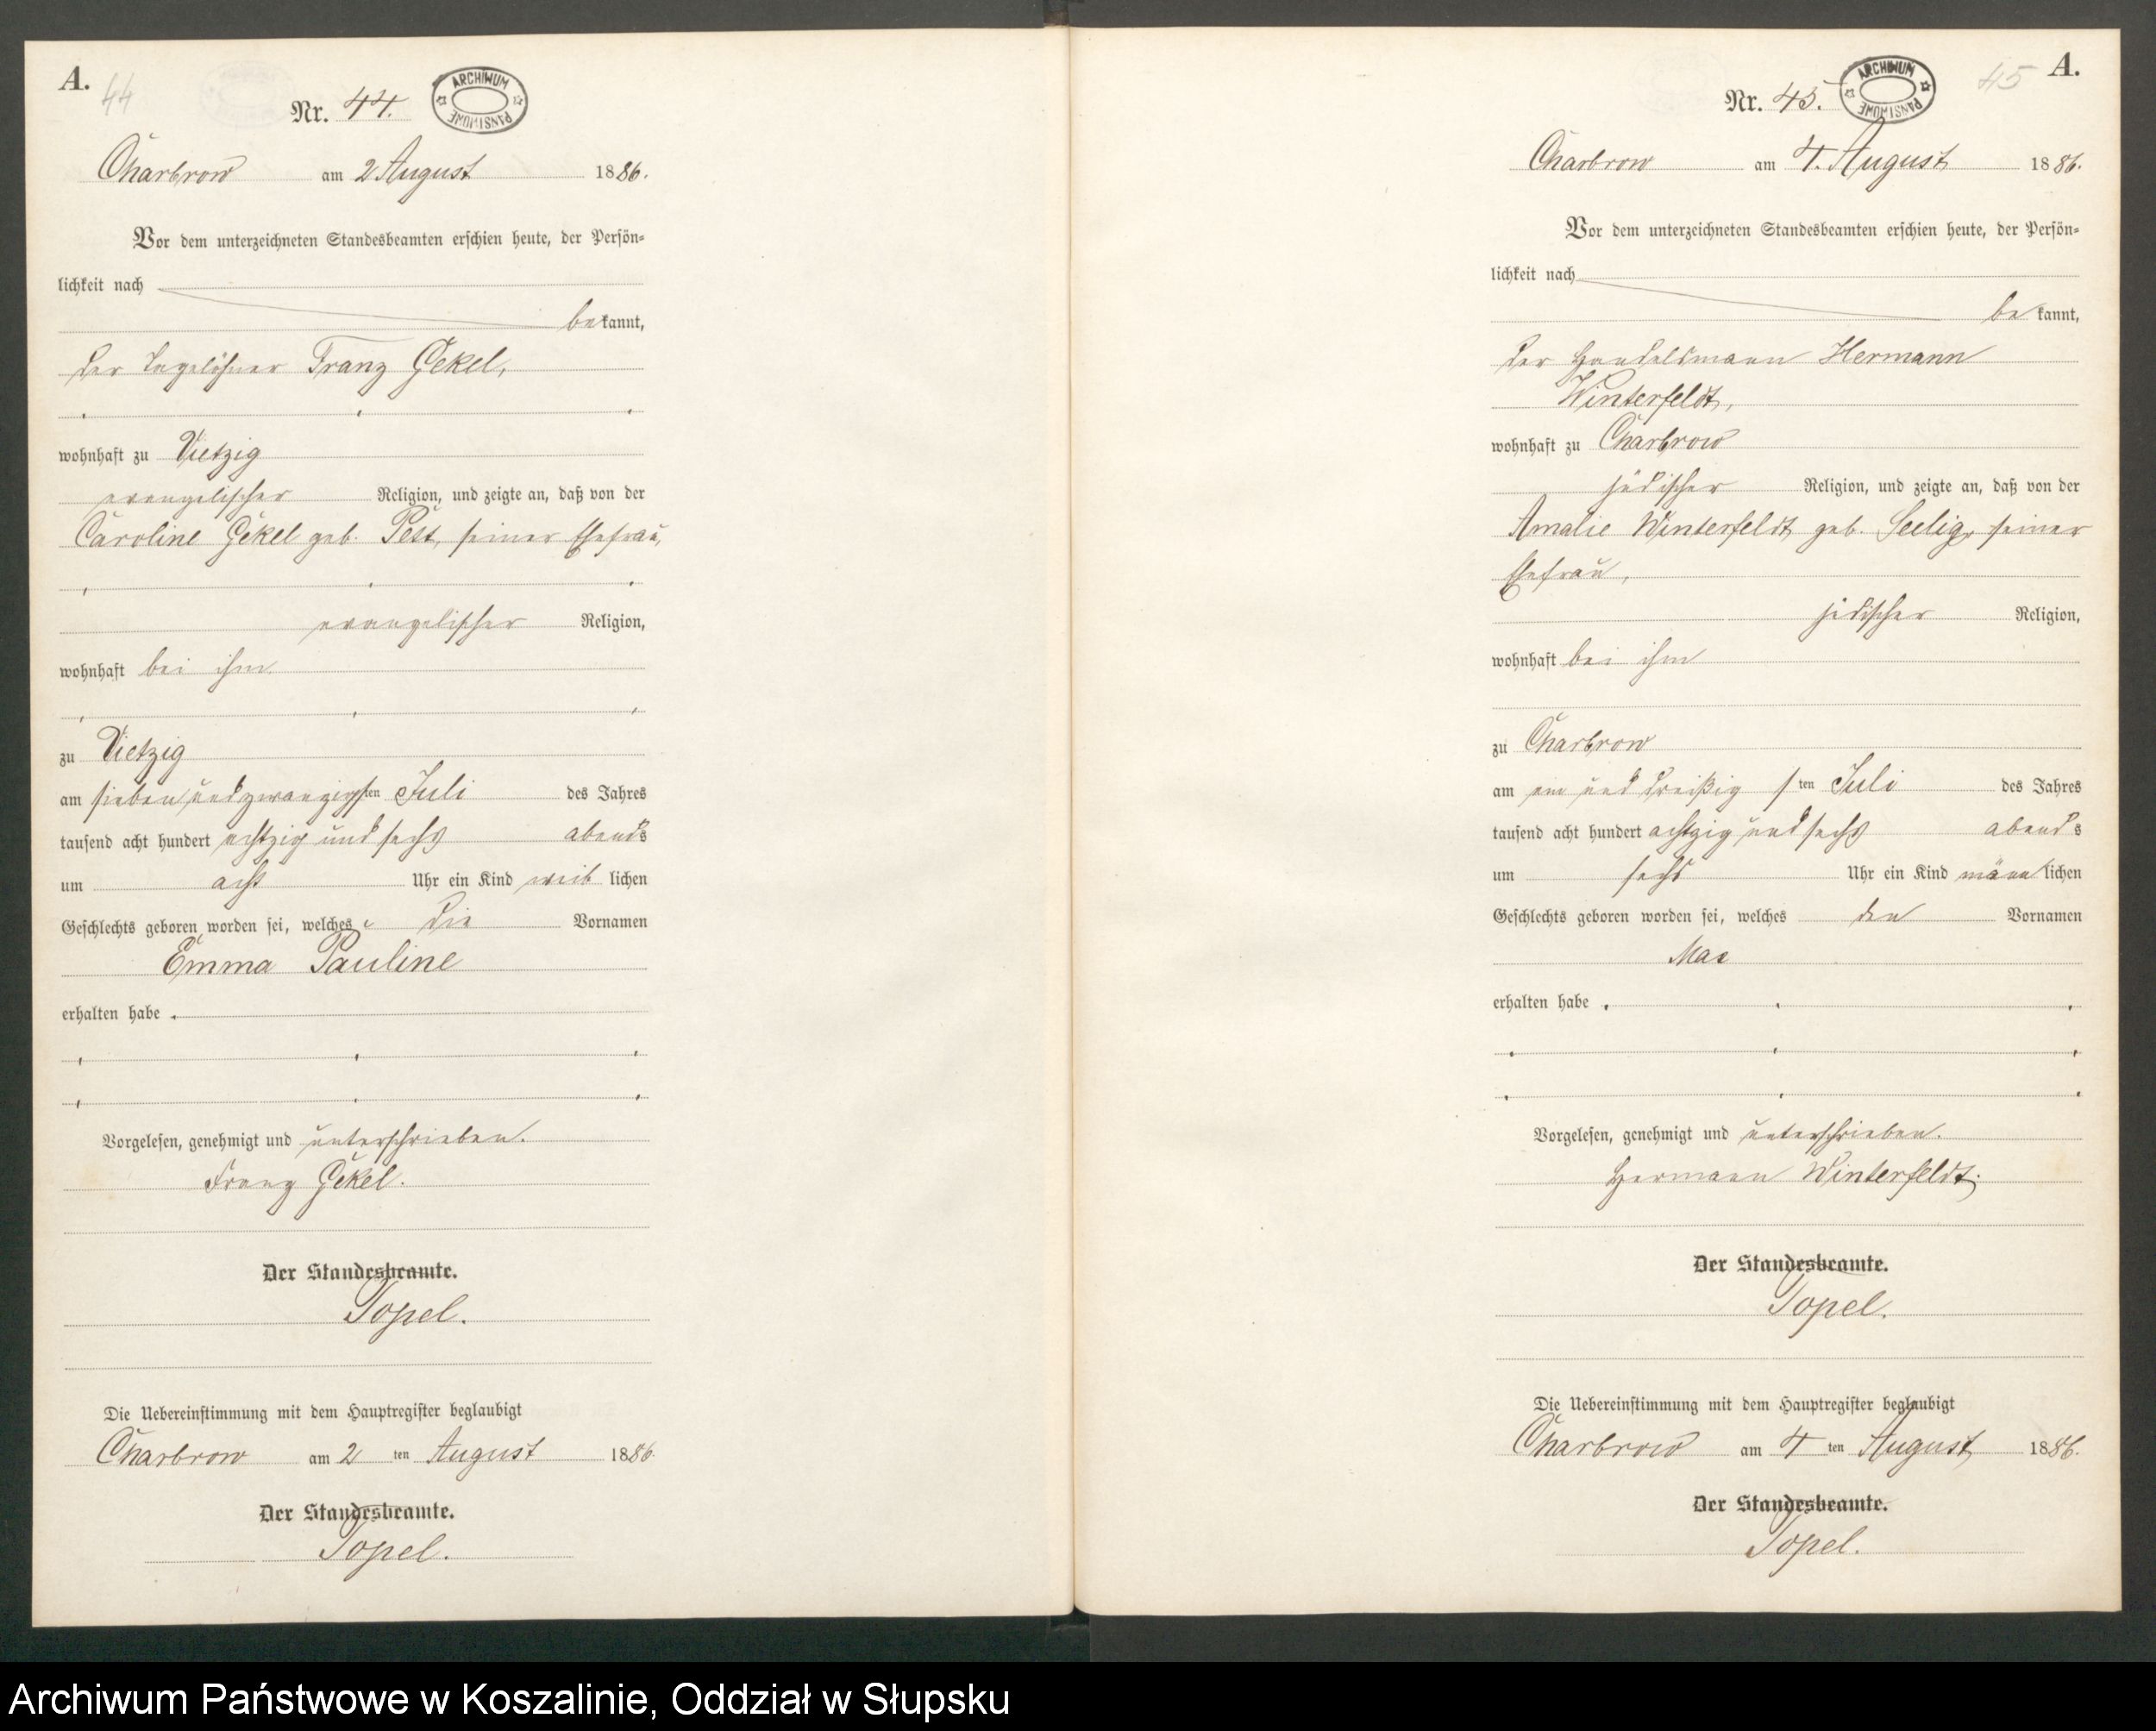 A.
44
Nr. 44.
ARCHIWUM PAŃSTWOWE
Charbrow am 2 August 1886.
Vor dem unterzeichneten Standesbeamten erschien heute, der Persön-
lichkeit nach
bekannt,
der Tagelöhner Franz Gekel,
wohnhaft zu Vietzig
evangelischer Religion, und zeigte an, daß von der
Caroline Gekel geb. Pett, seiner Ehefrau,
evangelischer Religion,
wohnhaft bei ihm
zu Vietzig
am sieben und zwanzigsten Juli des Jahres
tausend acht hundert achtzig und sechs abends
um acht Uhr ein Kind weiblichen
Geschlechts geboren worden sei, welches die Vornamen
Emma Pauline
erhalten habe.
Vorgelesen, genehmigt und unterschrieben.
Franz Gekel.
Der Standesbeamte.
Topel.
Die Uebereinstimmung mit dem Hauptregister beglaubigt
Charbrow am 2 ten August 1886.
Der Standesbeamte.
Topel.
A.
45
Nr. 45.
ARCHIWUM PAŃSTWOWE
Charbrow am 4. August 1886.
Vor dem unterzeichneten Standesbeamten erschien heute, der Persön-
lichkeit nach
bekannt,
der Handelsmann Hermann
Winterfeldt,
wohnhaft zu Charbrow
jüdischer Religion, und zeigte an, daß von der
Amalie Winterfeldt geb. Seelig, seiner
Ehefrau,
jüdischer Religion,
wohnhaft bei ihm
zu Charbrow
am ein und dreißigsten Juli des Jahres
tausend acht hundert achtzig und sechs abends
um sechs Uhr ein Kind männlichen
Geschlechts geboren worden sei, welches den Vornamen
Max
erhalten habe.
Vorgelesen, genehmigt und unterschrieben.
Hermann Winterfeldt.
Der Standesbeamte.
Topel.
Die Uebereinstimmung mit dem Hauptregister beglaubigt
Charbrow am 4 ten August 1886.
Der Standesbeamte.
Topel.
Archiwum Państwowe w Koszalinie, Oddział w Słupsku